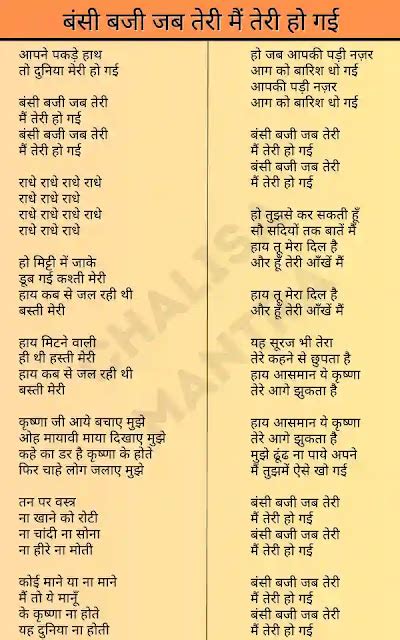 बंसी बजी जब तेरी मैं तेरी हो गई
आपने पकड़े हाथ
तो दुनिया मेरी हो गई
बंसी बजी जब तेरी
मैं तेरी हो गई
बंसी बजी जब तेरी
मैं तेरी हो गई
राधे राधे राधे राधे
राधे राधे राधे
राधे राधे राधे राधे
राधे राधे राधे
हो मिट्टी में जाके
डूब गई कश्ती मेरी
हाय कब से जल रही थी
बस्ती मेरी
हाय मिटने वाली
ही थी हस्ती मेरी
हाय कब से जल रही थी
बस्ती मेरी
कृष्णा जी आये बचाए मुझे
ओह मायावी माया दिखाए मुझे
कहे का डर है कृष्णा के होते
फिर चाहे लोग जलाए मुझे
तन पर वस्त्र
ना खाने को रोटी
ना चांदी ना सोना
ना हीरे ना मोती
कोई माने या ना माने
मैं तो ये मानूँ
के कृष्णा ना होते
यह दुनिया ना होती
हो जब आपकी पड़ी नज़र
आग को बारिश धो गई
आपकी पड़ी नज़र
आग को बारिश धो गई
बंसी बजी जब तेरी
मैं तेरी हो गई
बंसी बजी जब तेरी
मैं तेरी हो गई
हो तुझसे कर सकती हूँ
सौ सदियों तक बातें मैं
हाय तू मेरा दिल है
और हूँ तेरी आँखें मैं
हाय तू मेरा दिल है
और हूँ तेरी आँखें मैं
यह सूरज भी तेरा
तेरे कहने से छुपता है
हाय आसमान ये कृष्णा
तेरे आगे झुकता है
हाय आसमान ये कृष्णा
तेरे आगे झुकता है
मुझे ढूंढ ना पाये अपने
मैं तुझमें ऐसे खो गई
बंसी बजी जब तेरी
मैं तेरी हो गई
बंसी बजी जब तेरी
मैं तेरी हो गई
बंसी बजी जब तेरी
मैं तेरी हो गई
बंसी बजी जब तेरी
मैं तेरी हो गई
CHALISA
MANTRA